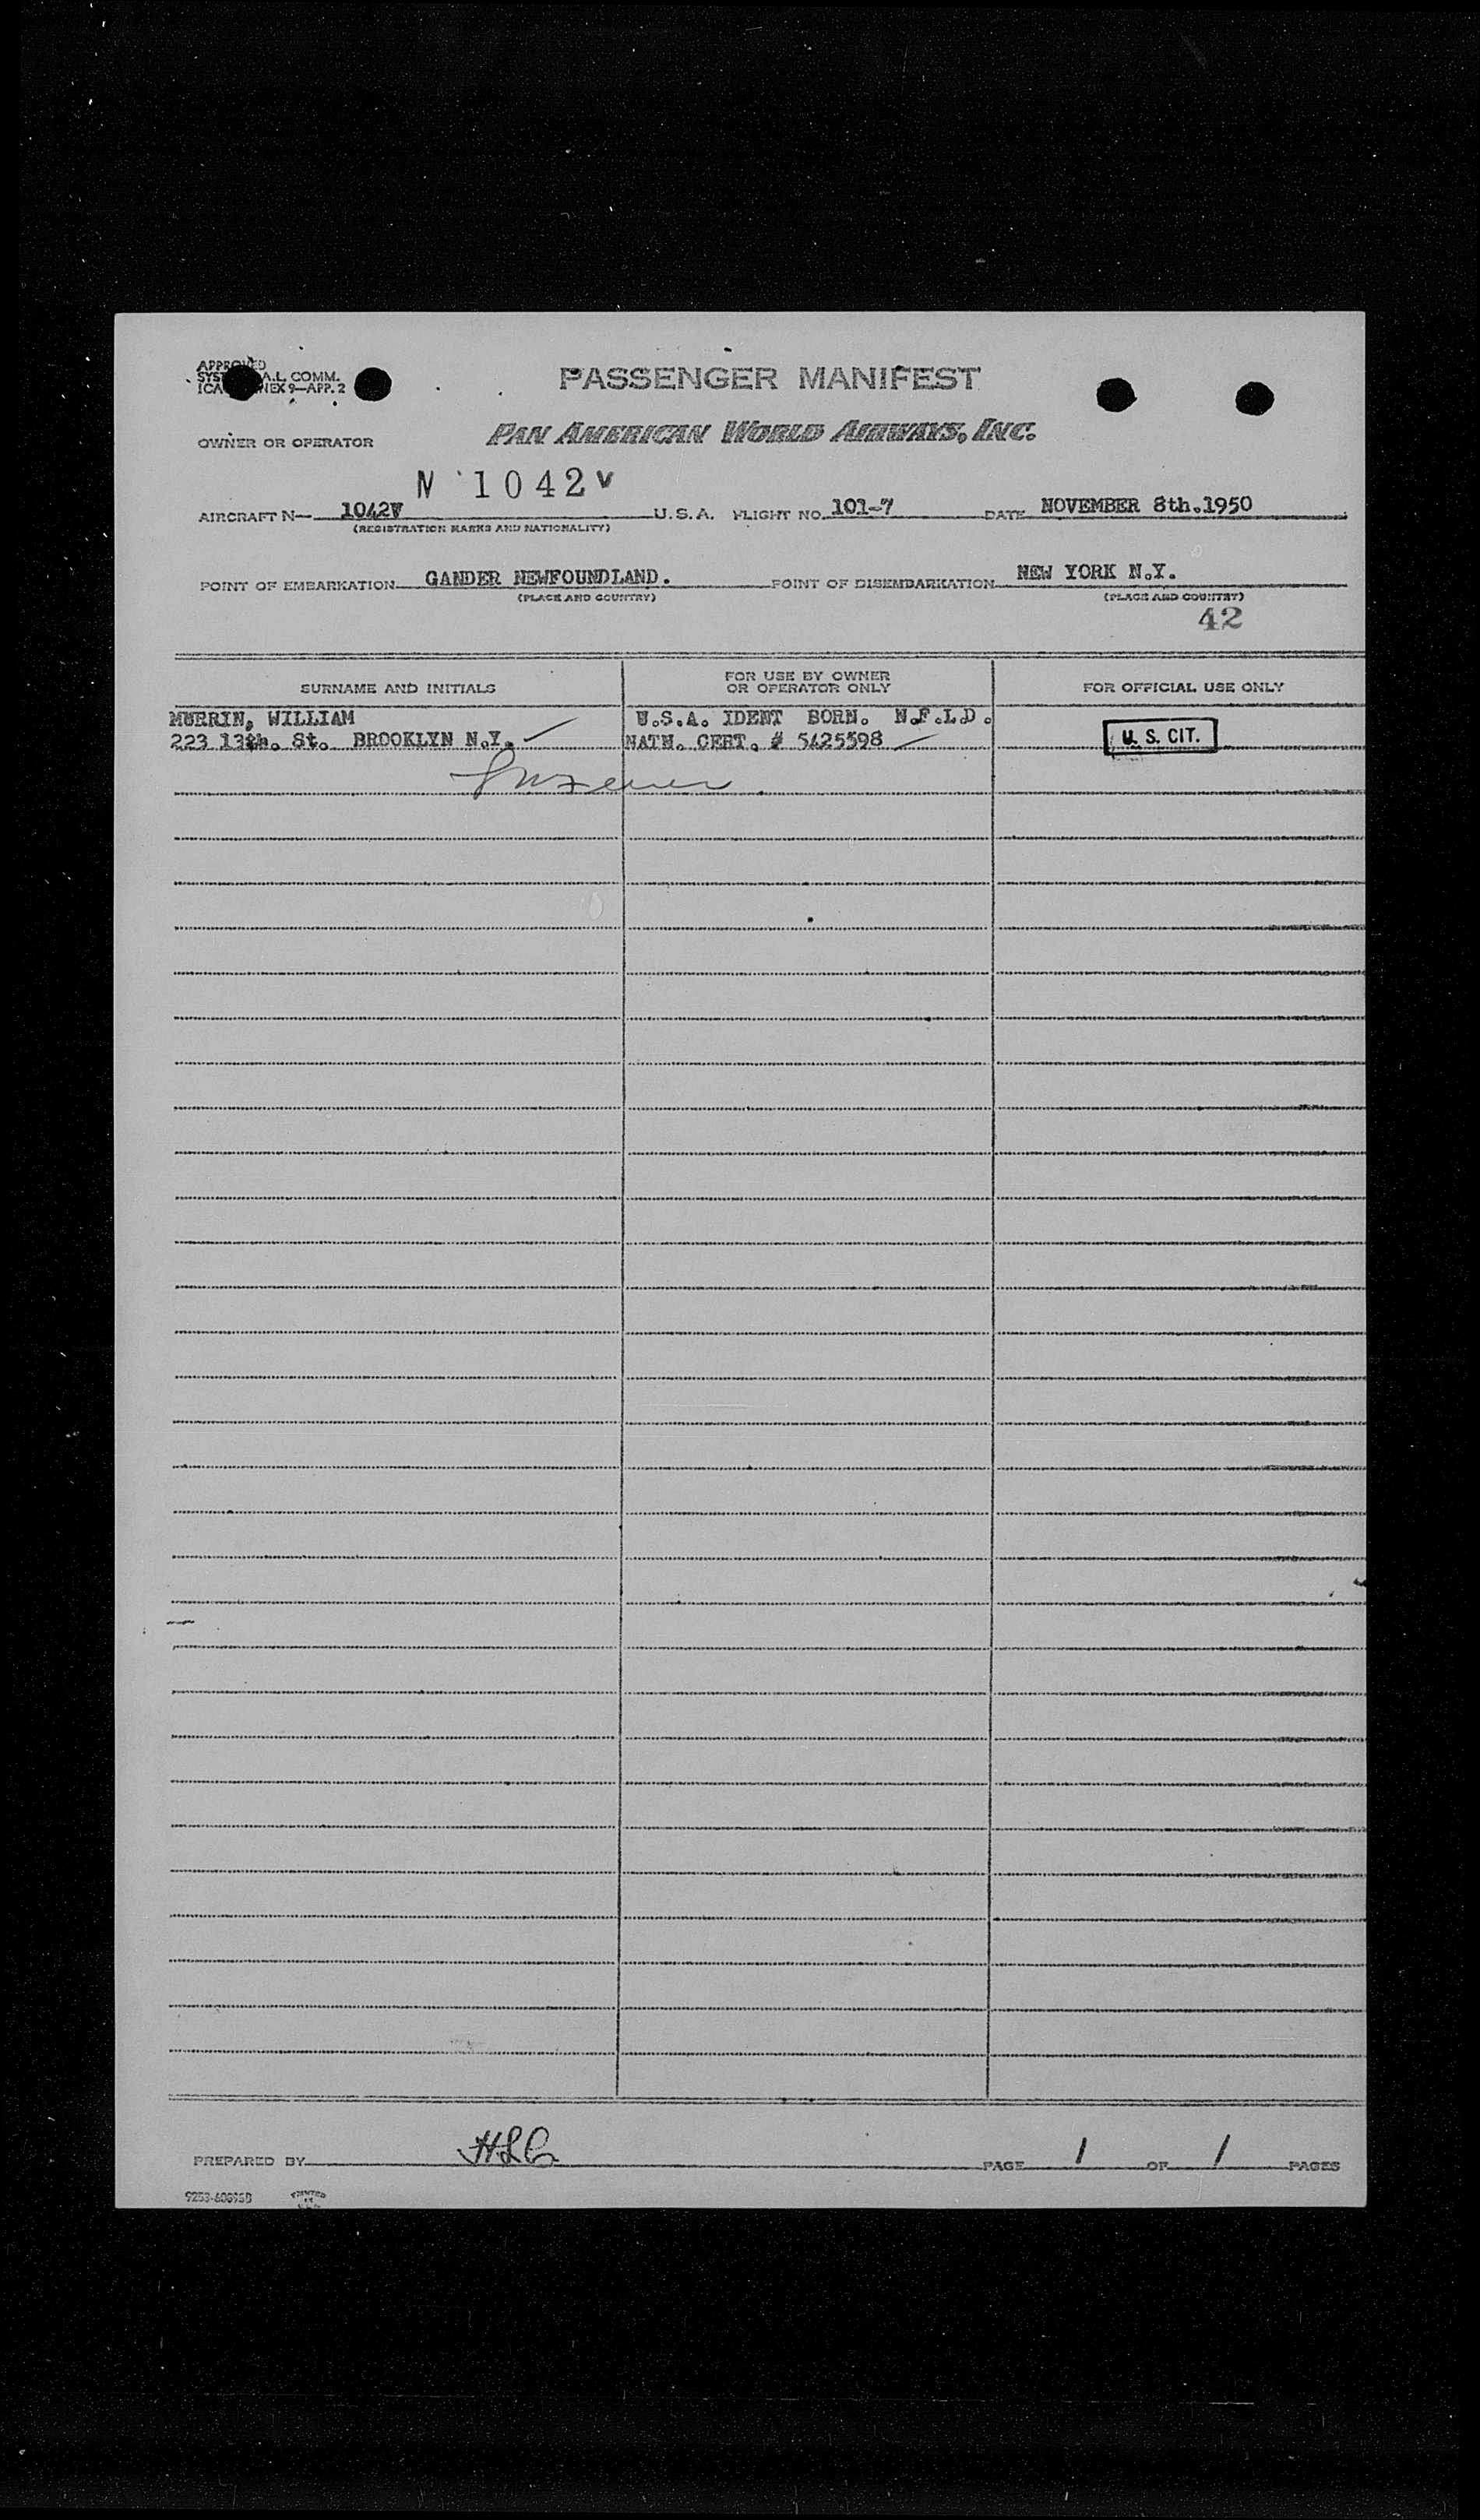 APPROVED
A.L. COMM.
9—APP. 2
PASSENGER MANIFEST
OWNER OR OPERATOR PAN AMERICAN WORLD AIRWAYS, INC.
N 1042V
AIRCRAFT N— 1042V U.S.A. FLIGHT NO. 101-7 DATE NOVEMBER 8th.1950
(REGISTRATION MARKS AND NATIONALITY)
POINT OF EMBARKATION GANDER NEWFOUNDLAND. POINT OF DISEMBARKATION NEW YORK N.Y.
(PLACE AND COUNTRY) (PLACE AND COUNTRY)
42
SURNAME AND INITIALS FOR USE BY OWNER OR OPERATOR ONLY FOR OFFICIAL USE ONLY
MURRIN, WILLIAM U.S.A. IDENT BORN. N.F.L.D.
223 13th. St. BROOKLYN N.Y. NATN. CERT. # 5425598 U. S. CIT.
PREPARED BY HLC PAGE 1 OF 1 PAGES